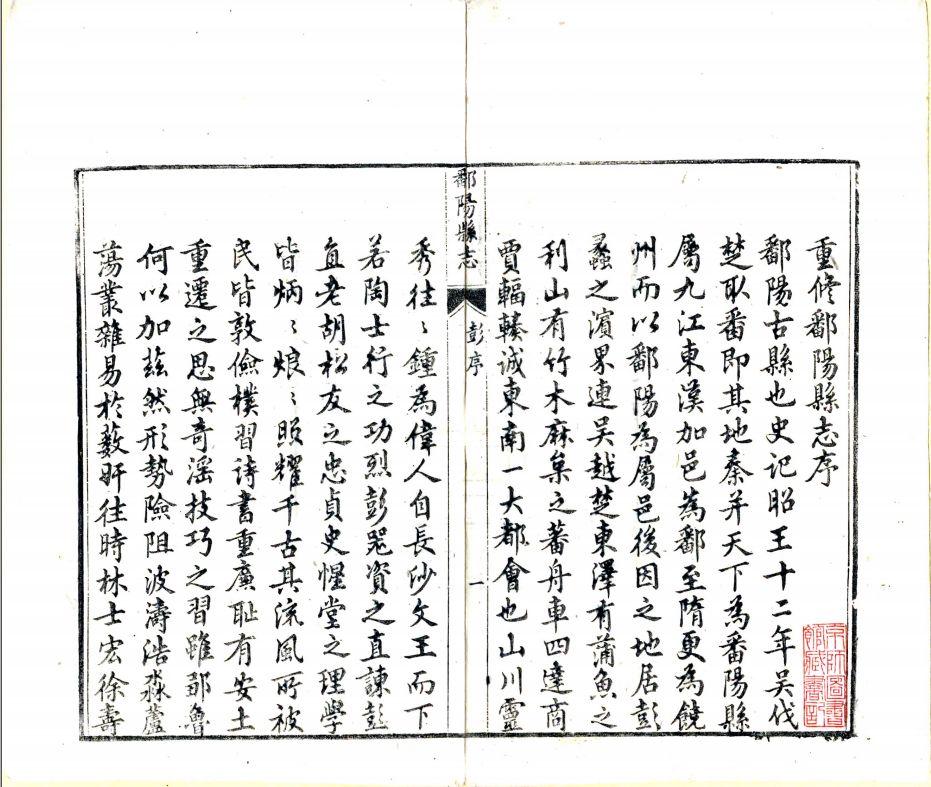 重修鄱陽縣志序
鄱陽古縣也史記昭王十二年吳伐
楚取番即其地秦并天下為番陽縣
屬九江東漢加邑為鄱至隋更為饒
州而以鄱陽為屬邑後因之地居彭
蠡之濱界連吳越楚東澤有蒲魚之
利山有竹木麻枲之蕃舟車四達商
賈輻輳誠東南一大都會也山川靈
鄱陽縣志
彭序
一
秀往〻鍾為偉人自長沙文王而下
若陶士行之功烈彭器資之直諫彭
直老胡松友之忠貞史惺堂之理學
皆炳〻烺〻照耀千古其流風所被
民皆敦儉樸習詩書重廉恥有安土
重遷之思無奇滛技巧之習雖鄒魯
何以加茲然形勢險阻波濤浩淼蘆
蕩叢雜易於藪奸往時林士宏徐壽